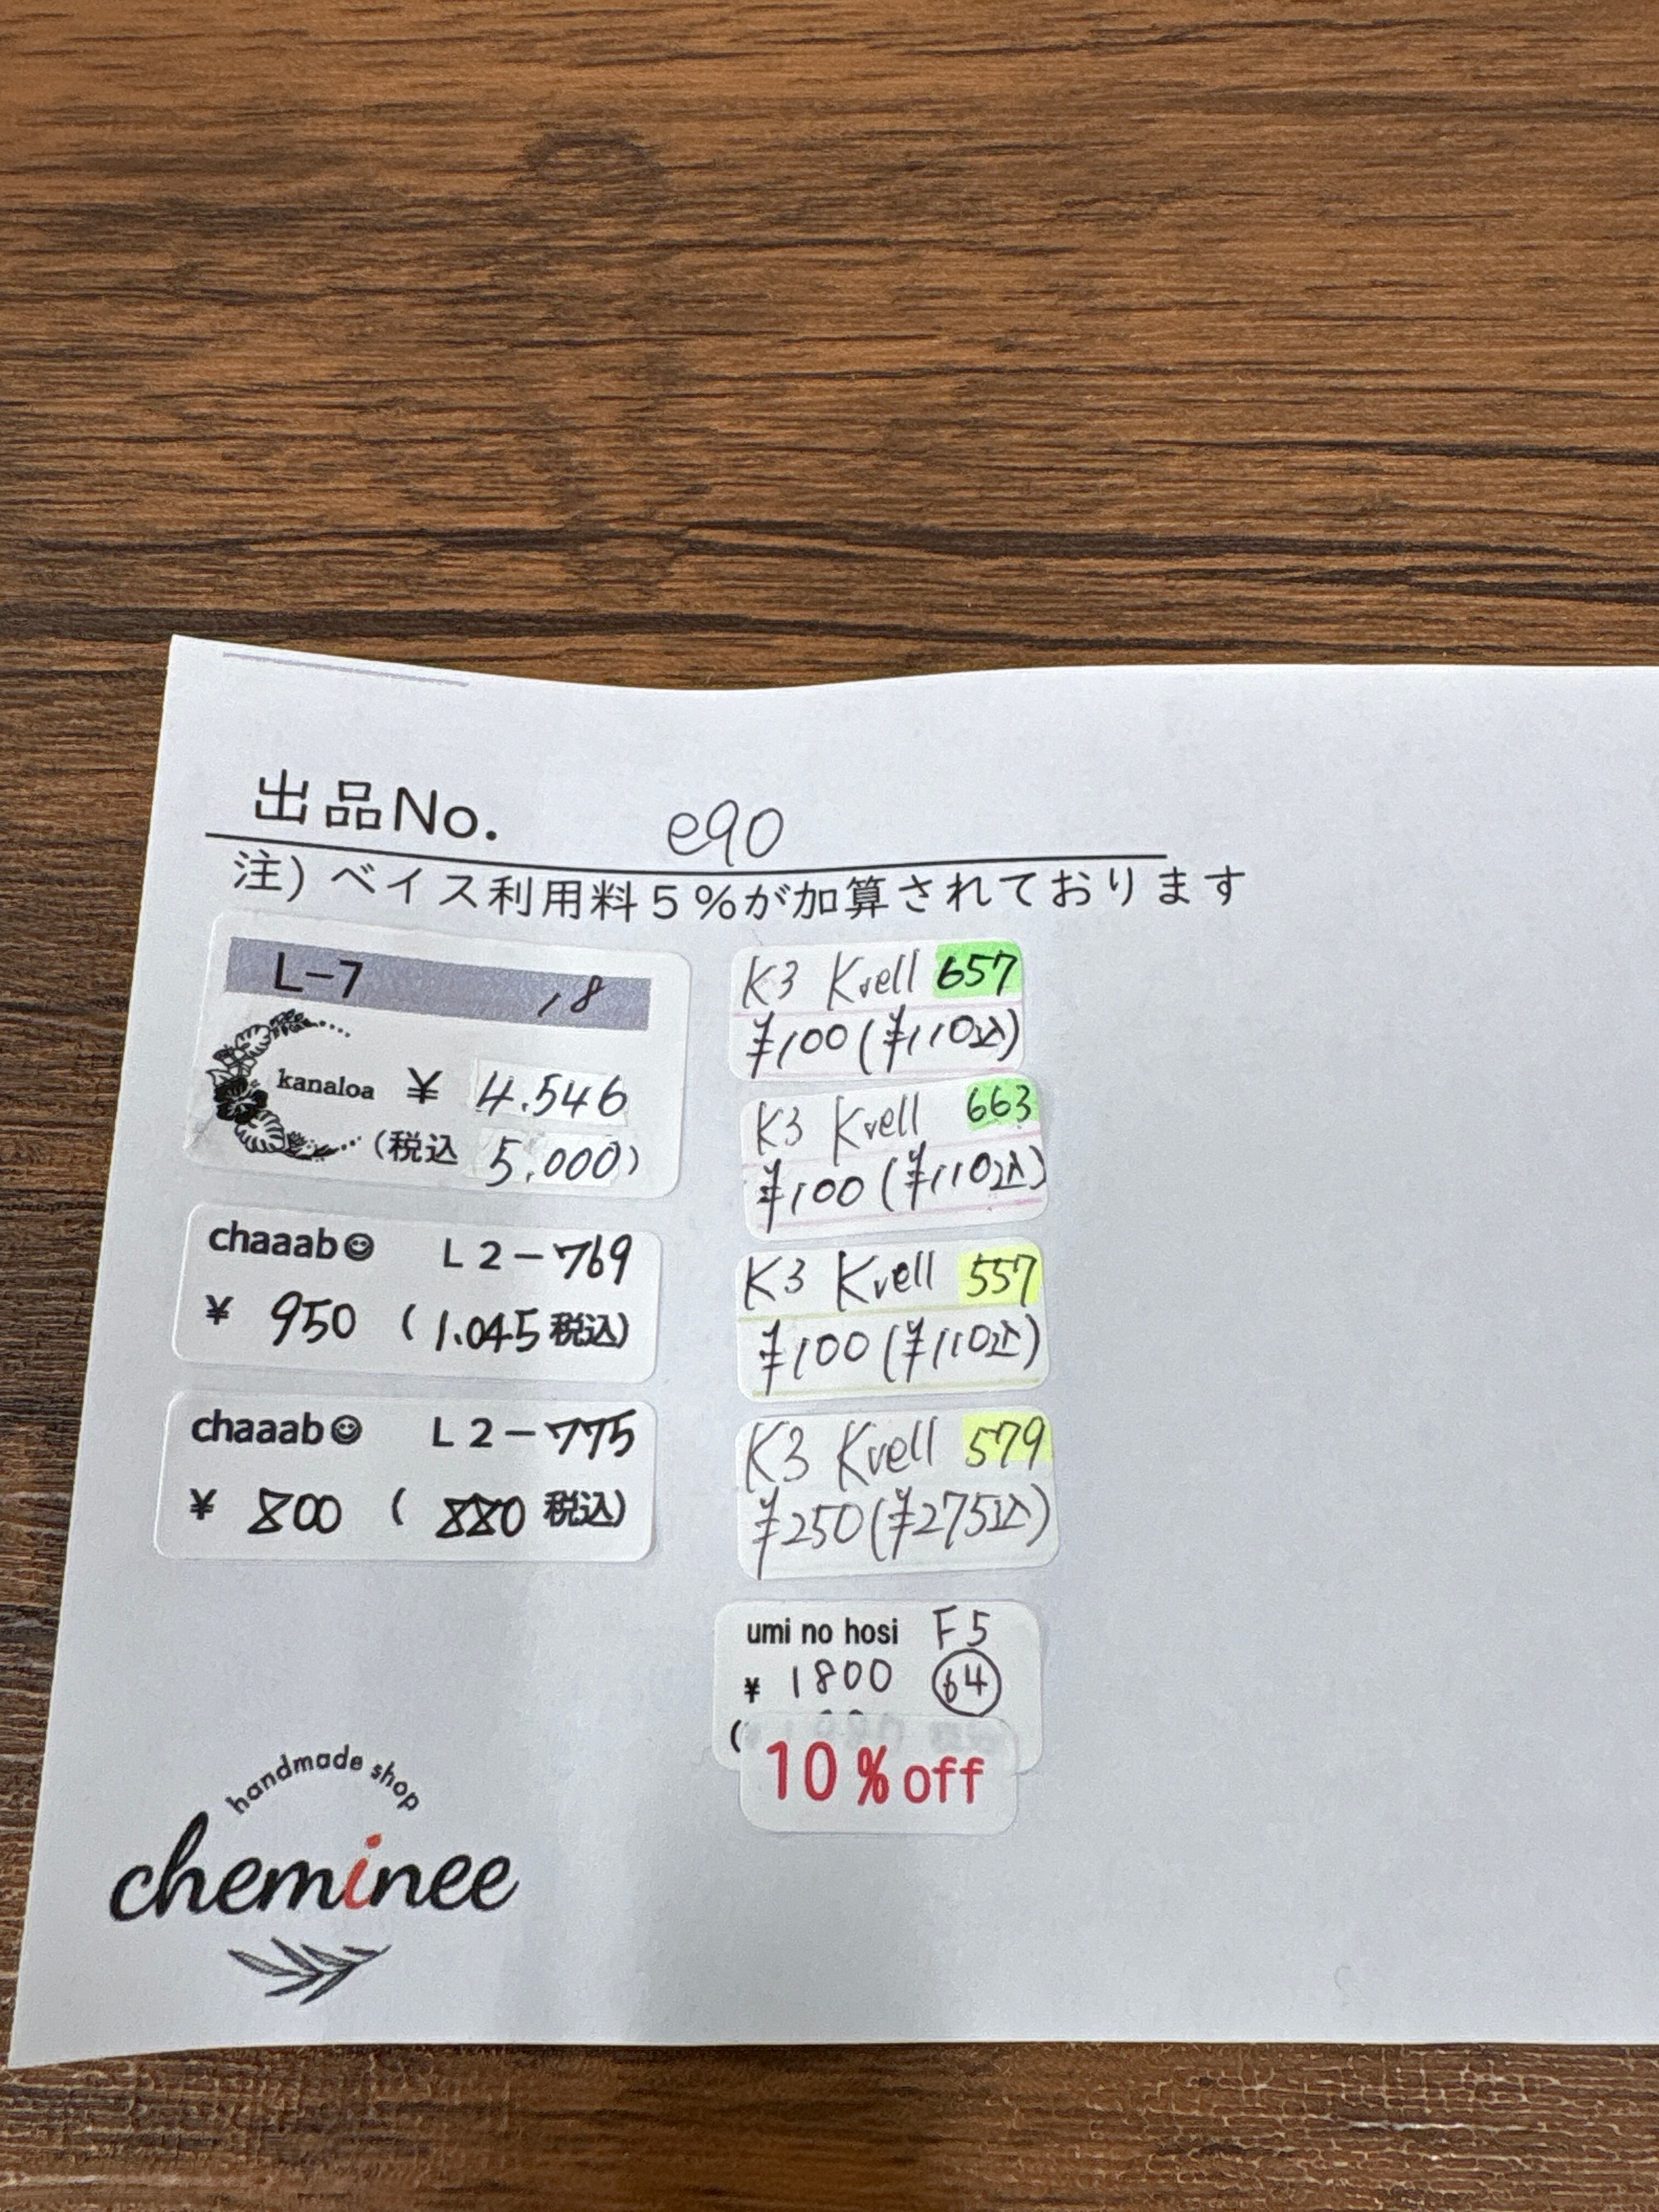 出品No. e90
注) ベイス利用料5%が加算されております
L-7 ,8
kanaloa ¥ 4.546
(税込 5.000)
chaaab☺ L2-769
¥ 950 (1.045税込)
chaaab☺ L2-775
¥ 800 (880税込)
K3 Krell 657
¥100(¥110込)
K3 Krell 663
¥100(¥110込)
K3 Krell 557
¥100(¥110込)
K3 Krell 579
¥250(¥275込)
umi no hosi F5
¥ 1800 64
(
10%off
handmade shop
cheminee